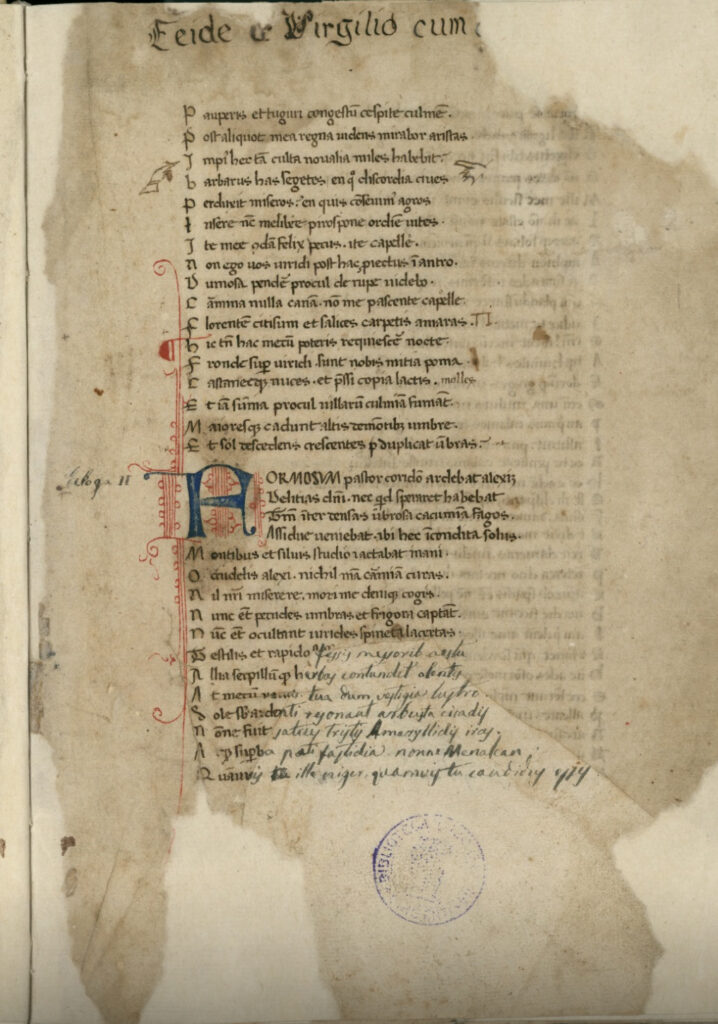 Eeide & Virgilio cum
P auperis et tuguri congestū cespite culmēn.
P ost aliquot mea regna uidens mirabor aristas
I mpi' hec tā culta noualia miles habebit:
b arbarus has segetes en q° discordia ciues
P erduxit miseros: en quis cōseuim' agros
I nsere nc̄ melibee piros pone ordīe uites.
I te mee qdā felix pecus. ite capelle.
N on ego uos uiridi post hac piectus ī antro.
D umosa pendē procul de rupe uidebo.
C armina nulla canā. nō me pascente capelle
F lorentē citisum et salices carpetis amaras.
h ic tn̄ hac mecū poteris requiescē nocte:
F ronde sup uiridi. sunt nobis mitia poma
C astaneeqȝ nuces. et pssi copia lactis. molles
E t iā sūma procul uillarū culmina fumāt.
M aioresqȝ cadunt altis de mōtibus umbre.
E t sol descedens crescentes p duplicat ūbras:
Ecloga II
FORMOSUM pastor coridō ardebat alexiȝ
Delitias dn̄i. nec qd speraret habebat
Tm̄ īter densas ūbrosa cacumīa fagos.
Assidue ueniebat. ibi hec īcondita solus.
M ontibus et siluis studio iactabat inani.
O crudelis alexi. nichil mēa carmina curas.
N il nr̄i miserere. mori me deniqȝ cogis.
N unc et pecudes umbras et frigora captāt.
N ūc et ocultant uirides spineta lacertas.
T estilis et rapido fessis messorib' aestu
A llia serpillūqȝ herbas contundit olentis
A t mecū raucis tua dum vestigia lustro.
S ole sb ardenti resonant arbusta cicadis
N ōne fuit satius tristis Amaryllidis iras.
A tqȝ supba pati fastidia. nonne Menalcan;
Q uāuis ille niger. quamvis tu candidus esses
BIBLIOTECA